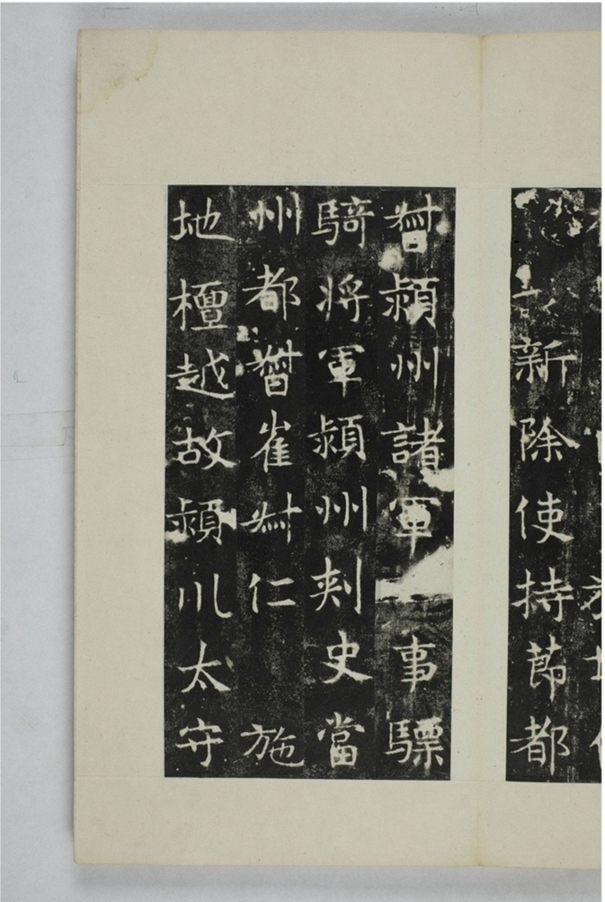 新除使持節都
督潁州諸軍事驃
騎將軍潁州刾史當
州都督崔叔仁 施
地檀越故潁川太守